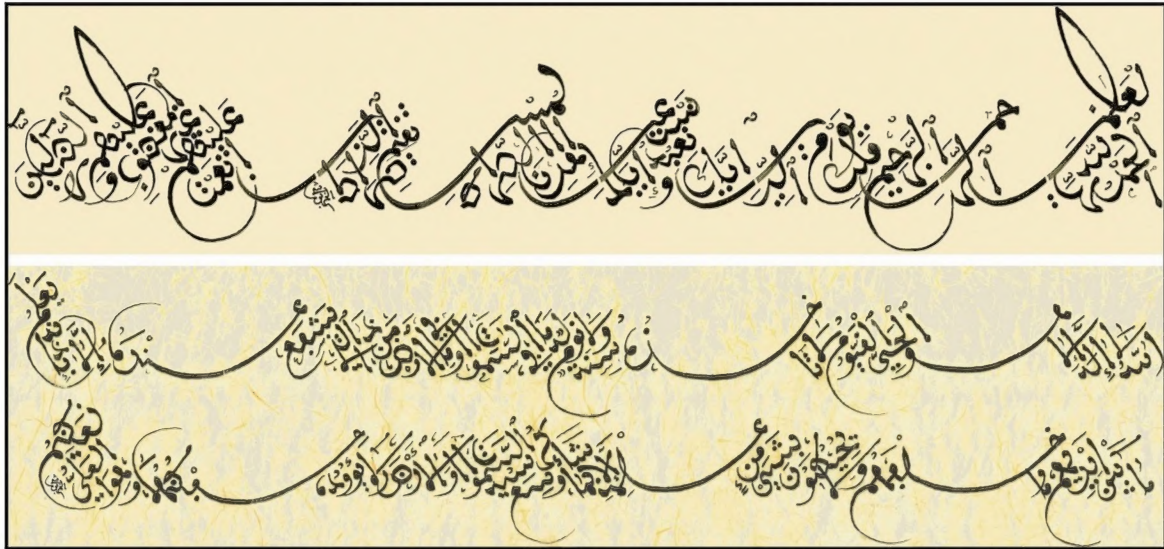 الحمد لله رب العلمين الرحمن الرحيم ملك يوم الدين إياك نعبد وإياك نستعين اهدنا الصراط المستقيم صراط الذين أنعمت عليهم غير المغضوب عليهم ولا الضالين
الله لا إله إلا هو الحي القيوم لا تأخذه سنة ولا نوم له ما في السموت وما في الأرض من ذا الذي يشفع عنده إلا بإذنه يعلم
ما بين أيديهم وما خلفهم ولا يحيطون بشيء من علمه إلا بما شاء وسع كرسيه السموت والأرض ولا يؤوده حفظهما وهو العلي العظيم